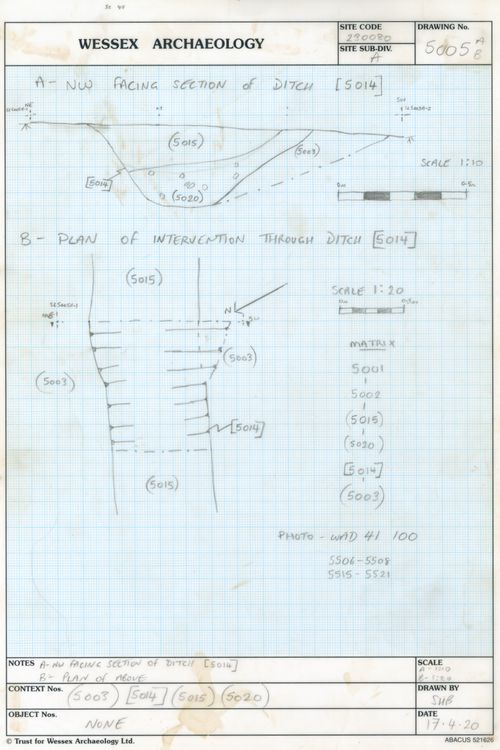 WESSEX ARCHAEOLOGY
SITE CODE
230080
SITE SUB-DIV.
A
DRAWING No.
5005 A
B
A - NW FACING SECTION OF DITCH [5014]
NE
SW
(5015)
(5003)
[5014]
(5020)
SCALE 1:10
0m
0.5m
B - PLAN OF INTERVENTION THROUGH DITCH [5014]
(5015)
SCALE 1:20
0m
N
SW
(5003)
(5003)
[5014]
(5015)
MATRIX
5001
5002
(5015)
(5020)
[5014]
(5003)
PHOTO - WAD 41 100
5506 - 5508
5515 - 5521
NOTES A - NW FACING SECTION OF DITCH [5014]
B - PLAN OF ABOVE
SCALE
A - 1:10
B - 1:20
CONTEXT Nos. (5003) [5014] (5015) (5020)
DRAWN BY
SHB
OBJECT Nos. NONE
DATE
17.4.20
© Trust for Wessex Archaeology Ltd.
ABACUS 521626